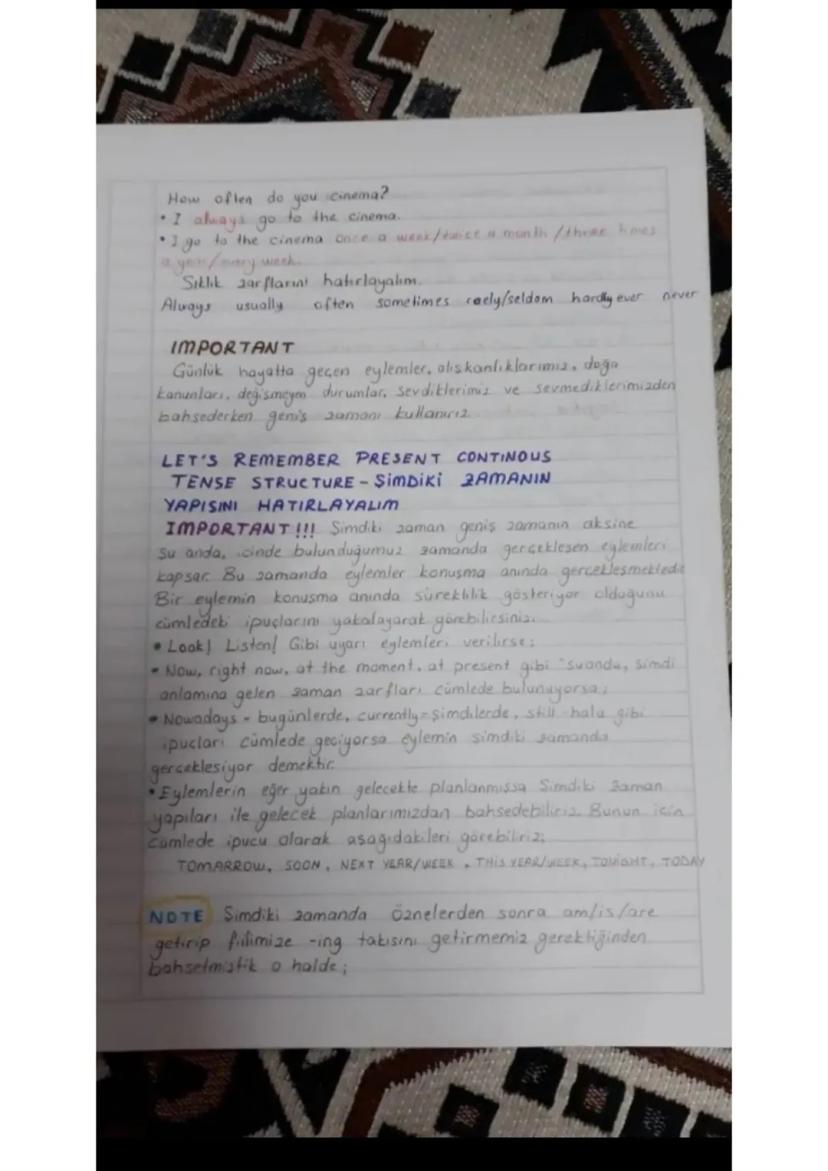 How often do you cinema?
• I always go to the cinema.
• I go to the cinema once a week/twice a month/three times
a year/every week.
Sıklık zarflarını hatırlayalım.
Always usually often sometimes raely/seldom hardly ever never
IMPORTANT
Günlük hayatta geçen eylemler, alışkanlıklarımız, doğa
kanunları, değişmeyen durumlar, sevdiklerimiz ve sevmediklerimizden
bahsederken geniş zamanı kullanırız.
LET'S REMEMBER PRESENT CONTINOUS
TENSE STRUCTURE - ŞİMDİKİ ZAMANIN
YAPISINI HATIRLAYALIM
IMPORTANT!!! Şimdiki zaman geniş zamanın aksine
şu anda, içinde bulunduğumuz zamanda gerçekleşen eylemleri
kapsar. Bu zamanda eylemler konuşma anında gerçekleşmektedir
Bir eylemin konuşma anında süreklilik gösteriyor olduğunu
cümledeki ipuçlarını yakalayarak görebilirsiniz.
• Look! Listen! Gibi uyarı eylemleri verilirse;
• Now, right now, at the moment, at present gibi "şuanda, şimdi
anlamına gelen zaman zarfları cümlede bulunuyorsa;
• Nowadays = bugünlerde, currently = şimdilerde, still-hala gibi
ipuçları cümlede geçiyorsa eylemin şimdiki zamanda
gerçekleşiyor demektir.
• Eylemlerin eğer yakın gelecekte planlanmışsa Şimdiki zaman
yapıları ile gelecek planlarımızdan bahsedebiliriz. Bunun için
cümlede ipucu olarak aşağıdakileri görebiliriz;
TOMARROW, SOON, NEXT YEAR/WEEK, THIS YEAR/WEEK, TONIGHT, TODAY
NOTE Şimdiki zamanda öznelerden sonra am/is/are
getirip fiilimize -ing takısını getirmemiz gerektiğinden
bahsetmiştik o halde;